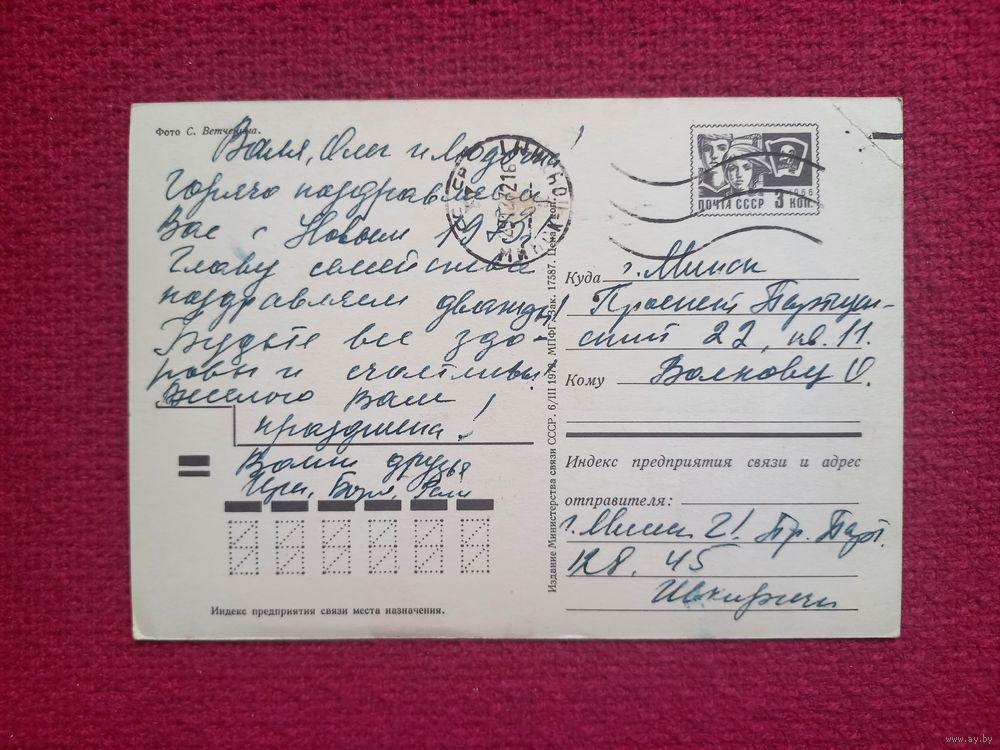 Фото С. Ветчинина.
Валя, Олег и Людочка!
Горячо поздравляем
Вас с Новым 1973г.
Главу семейства
поздравляем дважды!
Будьте все здо-
ровы и счастливы!
Веселого Вам
праздника!
Ваши друзья
Боря,
ПОЧТА СССР 3 КОП.
1966
Куда г. Минск
Проспект Партизан-
ский 22, кв. 11.
Кому Волкову О.
Индекс предприятия связи и адрес
отправителя:
г. Минск 21 Пр. Парт.
128. 45
Издание Министерства связи СССР. 6/III 1972. МПФГ. Зак. 17587. Цена 4 коп.
Индекс предприятия связи места назначения.
www.ay.by